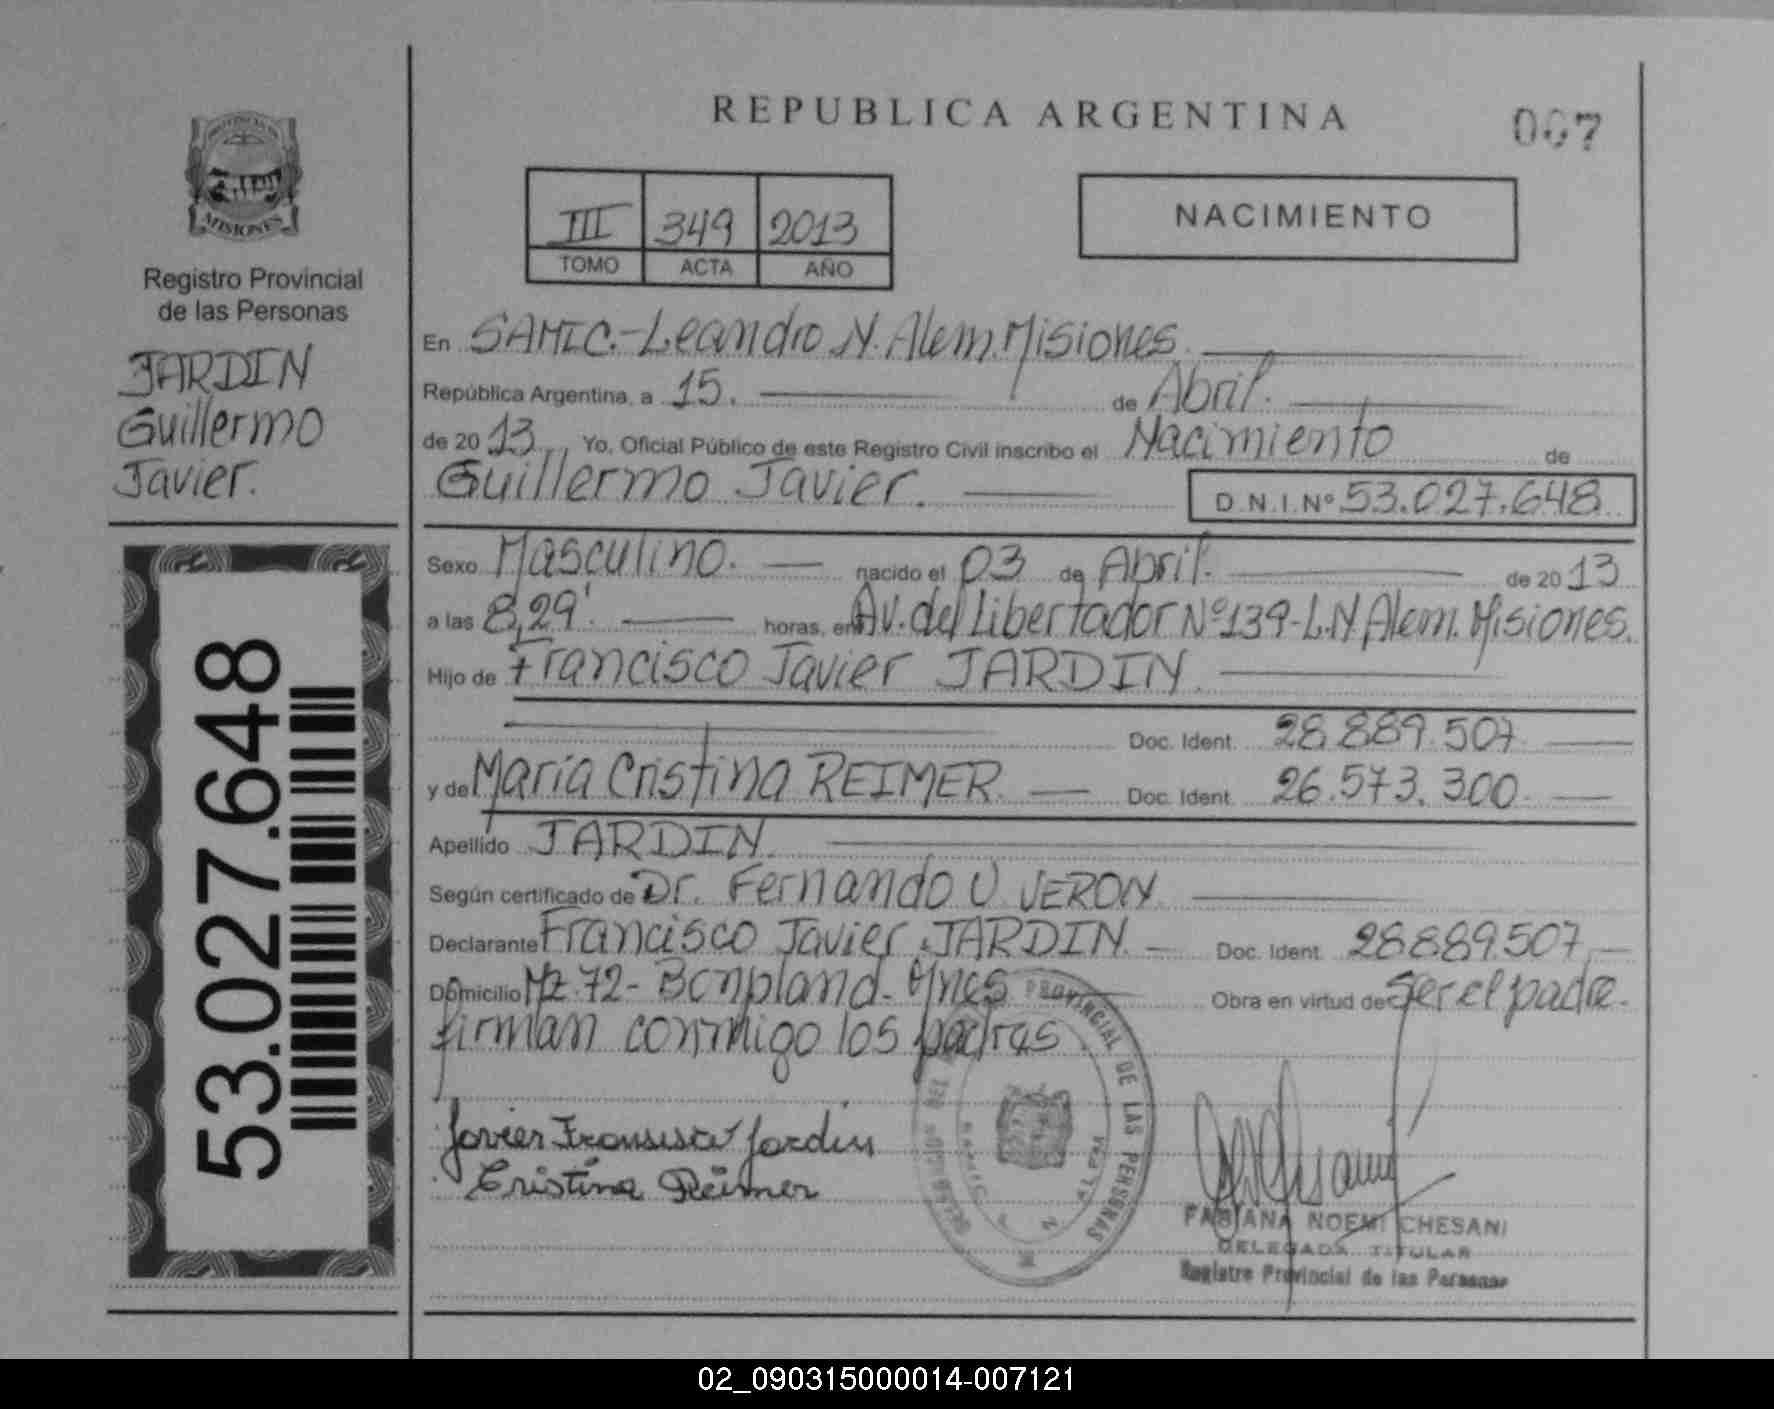 REPUBLICA ARGENTINA
007
PROVINCIA DE
MISIONES
Registro Provincial
de las Personas
JARDIN
Guillermo
Javier.
53.027.648
III 349 2013
TOMO ACTA AÑO
NACIMIENTO
En SAMIC.-Leandro N. Alem. Misiones
República Argentina, a 15. de Abril.
de 2013 Yo, Oficial Público de este Registro Civil inscribo el Nacimiento de
Guillermo Javier. D.N.I. Nº 53.027.648
Sexo Masculino. nacido el 03 de Abril. de 2013
a las 8,29'. horas, en Av. del Libertador Nº 139-L.N. Alem. Misiones.
Hijo de Francisco Javier JARDIN
Doc. Ident. 28.889.507
y de María Cristina REIMER Doc. Ident. 26.573.300
Apellido JARDIN.
Según certificado de Dr. Fernando U VERON
Declarante Francisco Javier JARDIN. Doc. Ident. 28.889.507
Domicilio Mz. 72- Bonpland. Mnes Obra en virtud de Ser el padre.
firman conmigo los padres
Javier Fransisco Jardin
Cristina Reimer
PROVINCIAL DE LAS PERSONAS
SAMIC L N ALEM
FABIANA NOEMI CHESANI
DELEGADA TITULAR
Registro Provincial de las Personas
02_090315000014-007121